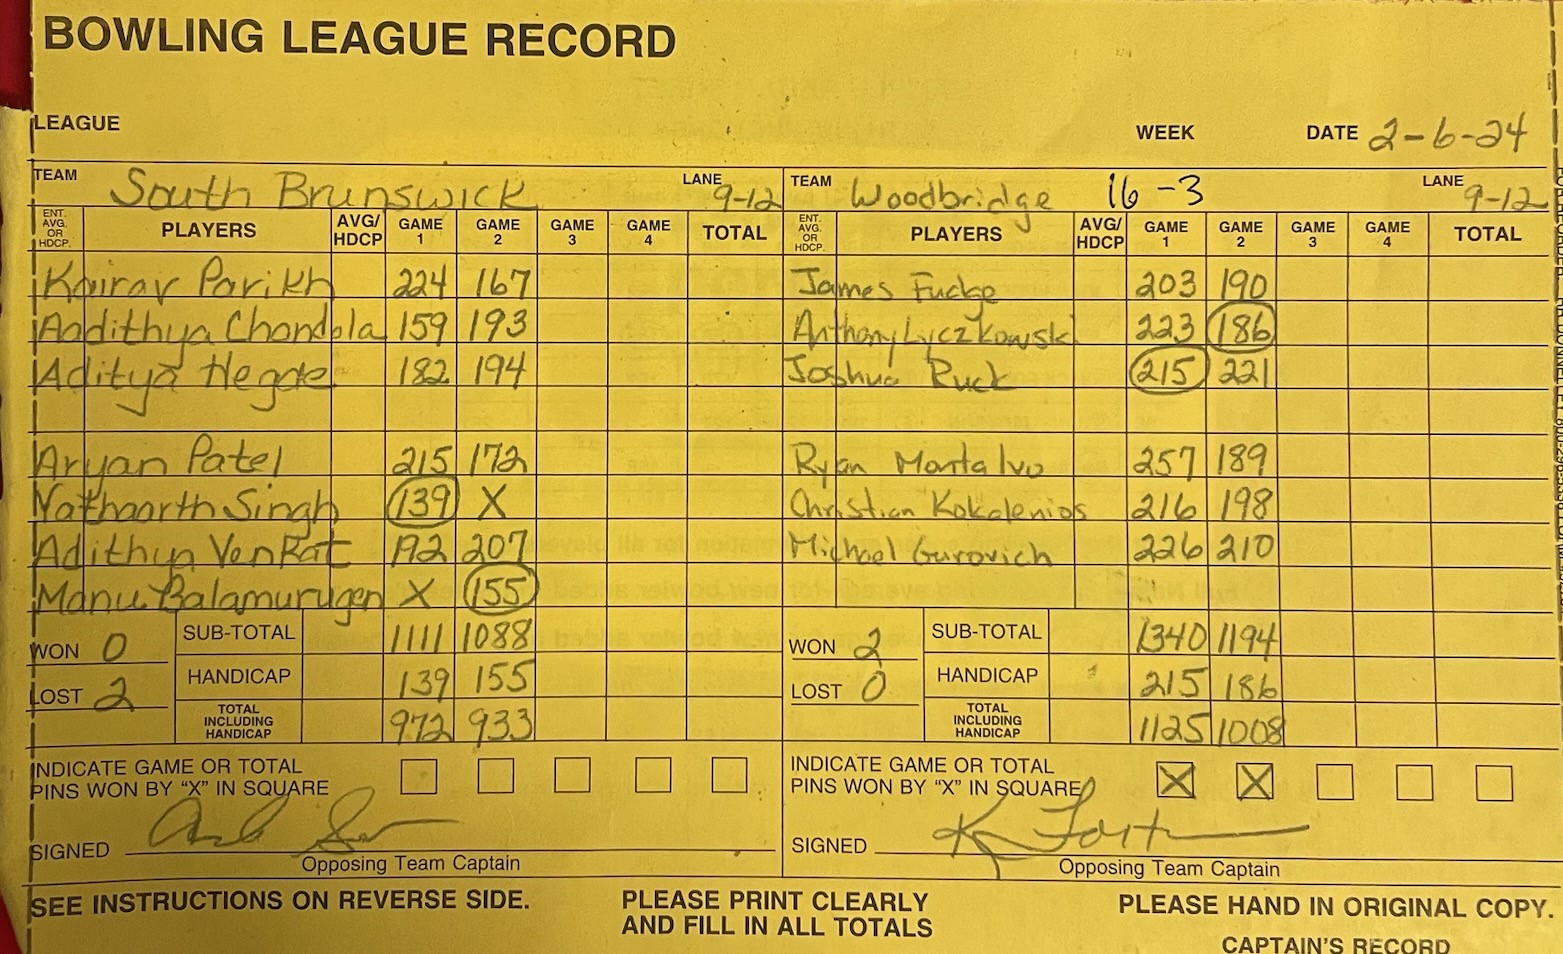 BOWLING LEAGUE RECORD
LEAGUE WEEK DATE 2-6-24
TEAM South Brunswick LANE 9-12 TEAM Woodbridge 16-3 LANE 9-12
ENT. AVG. OR HDCP. PLAYERS AVG/ HDCP GAME 1 GAME 2 GAME 3 GAME 4 TOTAL ENT. AVG. OR HDCP. PLAYERS AVG/ HDCP GAME 1 GAME 2 GAME 3 GAME 4 TOTAL
Kairav Parikh 224 167 James Fudge 203 190
Aadithya Chandola 159 193 Anthony Lyczkowski 223 186
Aditya Hegde 182 194 Joshua Ruck 215 221
Aryan Patel 215 172 Ryan Montalvo 257 189
Yathaarth Singh 139 X Christian Kokolenios 216 198
Adithya VenKat 192 207 Michael Gurovich 226 210
Manu Balamurugan X 155
WON 0 SUB-TOTAL 1111 1088 WON 2 SUB-TOTAL 1340 1194
LOST 2 HANDICAP 139 155 LOST 0 HANDICAP 215 186
TOTAL INCLUDING HANDICAP 972 933 TOTAL INCLUDING HANDICAP 1125 1008
INDICATE GAME OR TOTAL INDICATE GAME OR TOTAL
PINS WON BY "X" IN SQUARE PINS WON BY "X" IN SQUARE X X
SIGNED SIGNED
Opposing Team Captain Opposing Team Captain
SEE INSTRUCTIONS ON REVERSE SIDE. PLEASE PRINT CLEARLY PLEASE HAND IN ORIGINAL COPY.
AND FILL IN ALL TOTALS
CAPTAIN'S RECORD